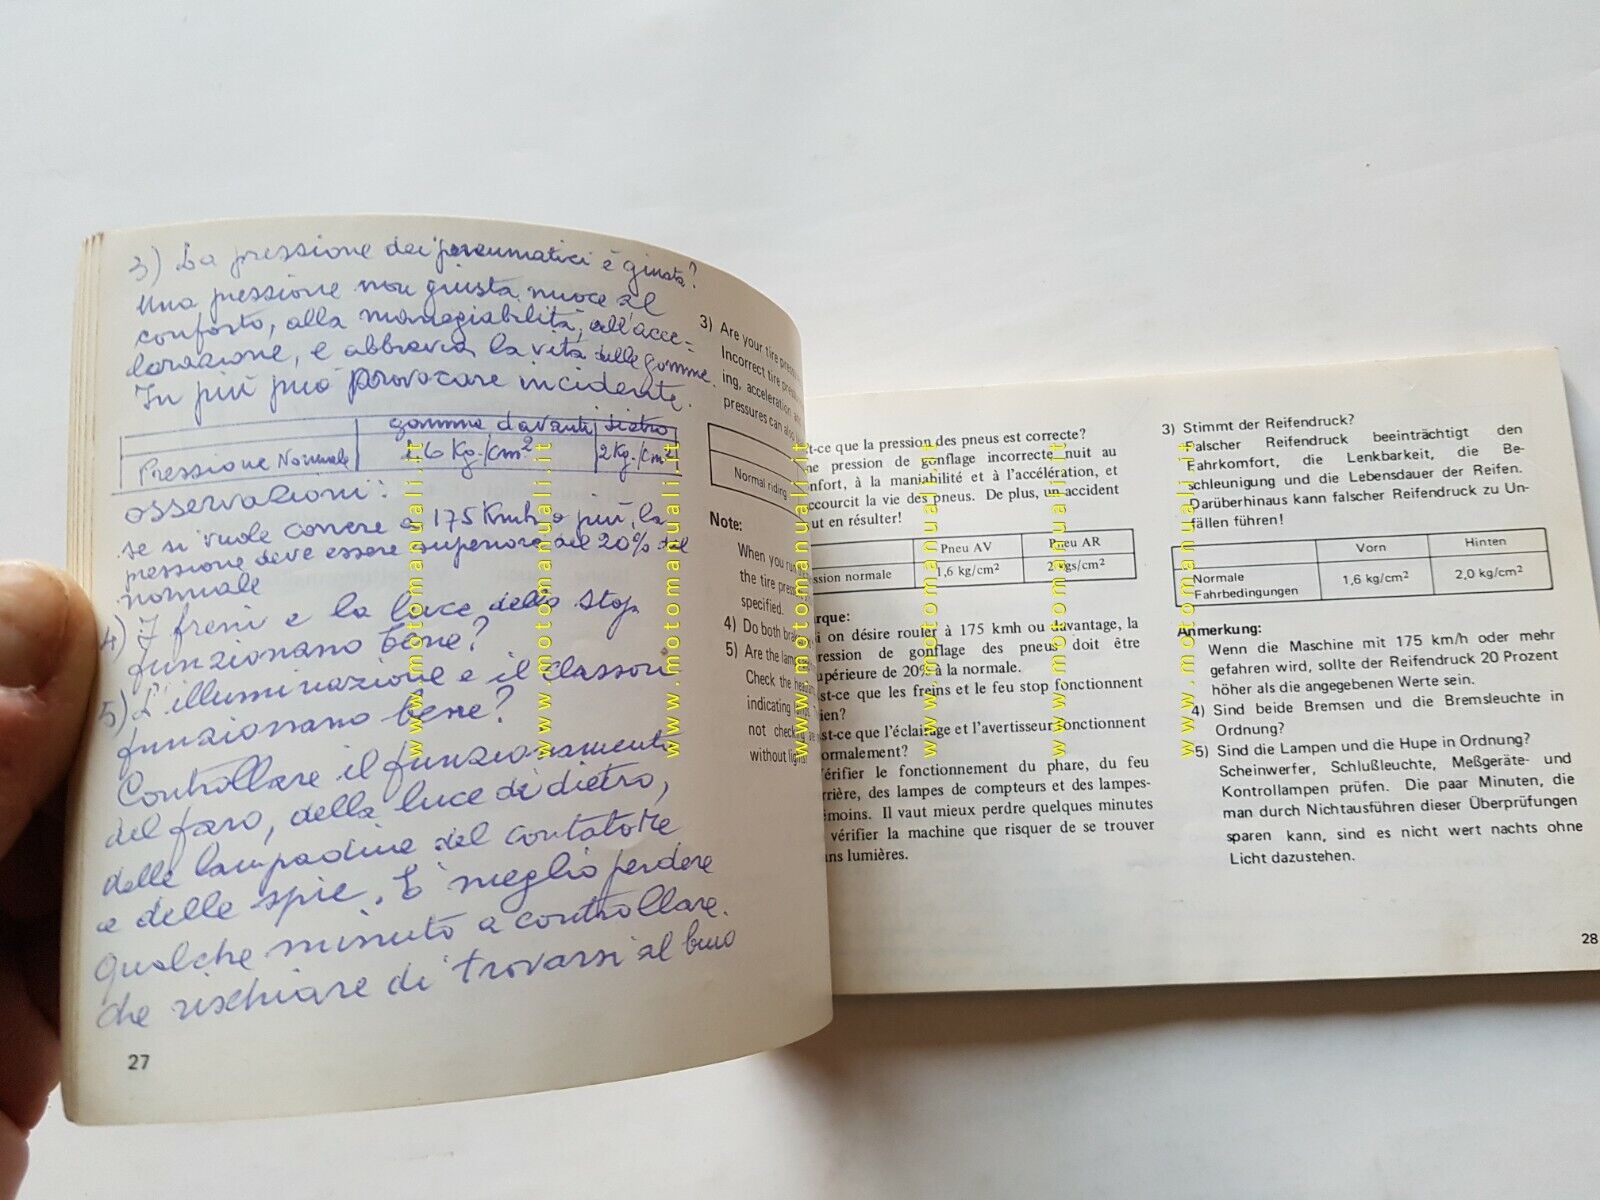 3) La pressione dei pneumatici è giusta?
Una pressione non giusta nuoce al
conforto, alla maneggiabilità, all'acce=
lerazione, e abbrevia la vita delle gomme.
In più può provocare incidente.
gomme davanti dietro
Pressione Normale 1,6 Kg./cm² 2 Kg./cm²
osservazioni:
se si vuole correre a 175 Kmh o più, la
pressione deve essere superiore del 20% del
normale
4) I freni e la luce dello stop
funzionano bene?
5) L'illuminazione e il classon
funzionano bene?
Controllare il funzionamento
del faro, della luce di dietro,
delle lampadine del contatore
e delle spie. È meglio perdere
qualche minuto a controllare.
che rischiare di trovarsi al buio
27
3) Are your tire
Incorrect tire
ing, acceleration
pressures can also
Normal riding
Note:
When you
the tire
specified.
4) Do both
5) Are the
Check the
indicating
not checking
without lights
-ce que la pression des pneus est correcte?
pression de gonflage incorrecte nuit au
nfort, à la maniabilité et à l'accélération, et
ccourcit la vie des pneus. De plus, un accident
ut en résulter!
Pneu AV Pneu AR
ssion normale 1,6 kg/cm² 2 kgs/cm²
rque:
i on désire rouler à 175 kmh ou davantage, la
ression de gonflage des pneus doit être
upérieure de 20% à la normale.
st-ce que les freins et le feu stop fonctionnent
ien?
st-ce que l'éclairage et l'avertisseur fonctionnent
ormalement?
érifier le fonctionnement du phare, du feu
rrière, des lampes de compteurs et des lampes-
émoins. Il vaut mieux perdre quelques minutes
vérifier la machine que risquer de se trouver
ns lumières.
3) Stimmt der Reifendruck?
Falscher Reifendruck beeinträchtigt den
Fahrkomfort, die Lenkbarkeit, die Be-
schleunigung und die Lebensdauer der Reifen.
Darüberhinaus kann falscher Reifendruck zu Un-
fällen führen!
Vorn Hinten
Normale 1,6 kg/cm² 2,0 kg/cm²
Fahrbedingungen
Anmerkung:
Wenn die Maschine mit 175 km/h oder mehr
gefahren wird, sollte der Reifendruck 20 Prozent
höher als die angegebenen Werte sein.
4) Sind beide Bremsen und die Bremsleuchte in
Ordnung?
5) Sind die Lampen und die Hupe in Ordnung?
Scheinwerfer, Schlußleuchte, Meßgeräte- und
Kontrollampen prüfen. Die paar Minuten, die
man durch Nichtausführen dieser Überprüfungen
sparen kann, sind es nicht wert nachts ohne
Licht dazustehen.
28
www.motomanuali.it
www.motomanuali.it
www.motomanuali.it
www.motomanuali.it
www.motomanuali.it
www.motomanuali.it
www.motomanuali.it